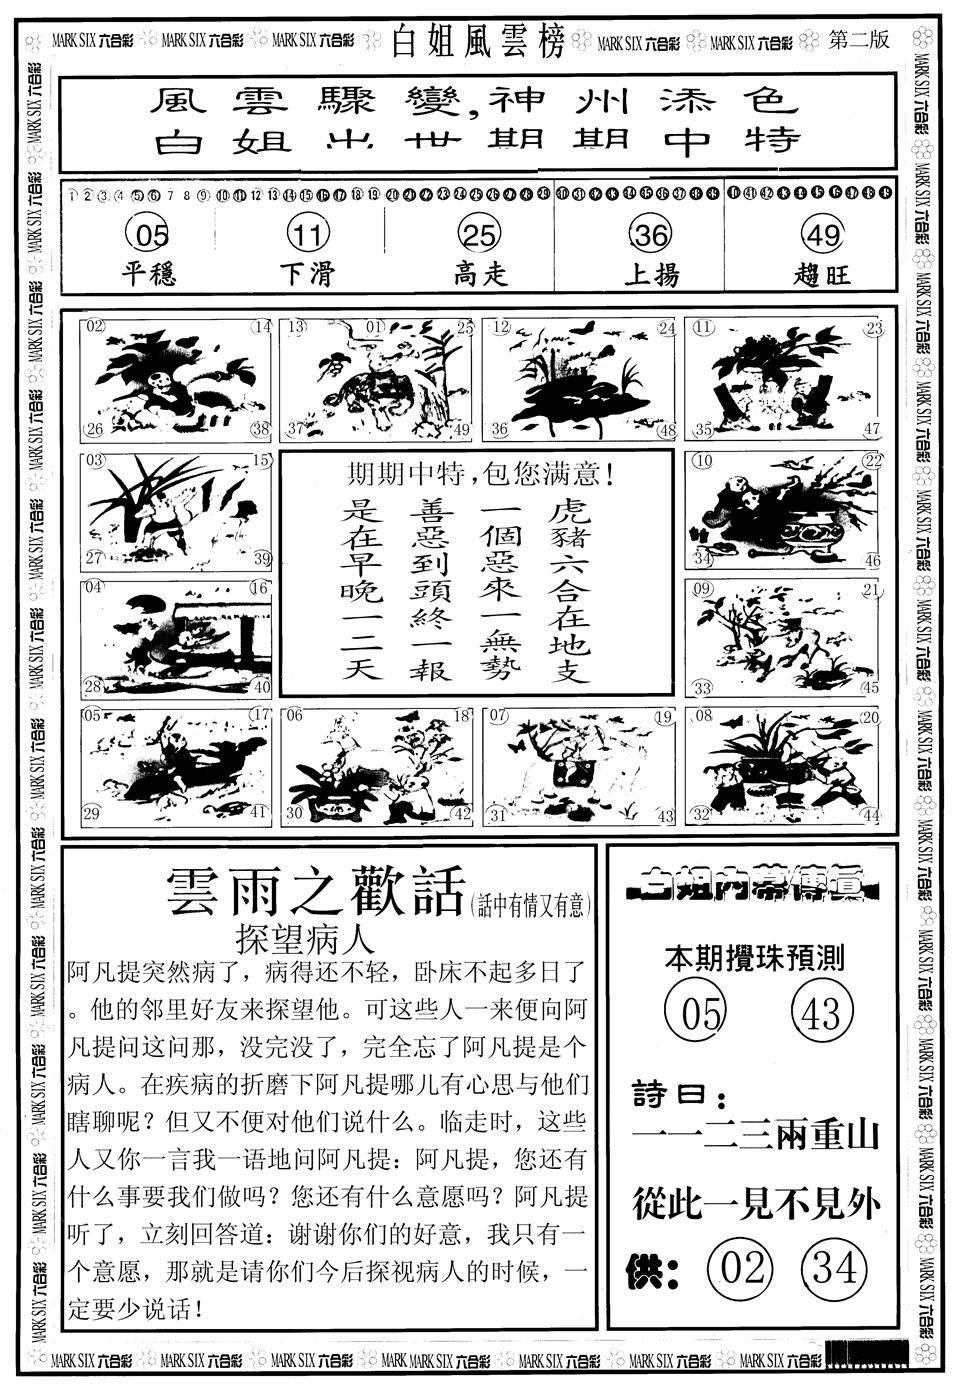 MARK SIX 六合彩 MARK SIX 六合彩 MARK SIX 六合彩 白姐風雲榜 MARK SIX 六合彩 MARK SIX 六合彩 第二版
風雲驟變,神州添色
白姐出世期期中特
1 2 3 4 5 6 7 8 9 10 11 12 13 14 15 16 17 18 19 20 21 22 23 24 25 26 27 28 29 30 31 32 33 34 35 36 37 38 39 40 41 42 43 44 45 46 47 48 49
05 11 25 36 49
平穩 下滑 高走 上揚 趨旺
02 14 13 01 25 12 24 11 23
26 38 37 49 36 48 35 47
03 15
27 39
04 16
28 40
期期中特,包您满意!
虎豬六合在地支
一個惡來一無勢
善惡到頭終一報
是在早晚一二天
10 22
34 46
09 21
33 45
05 17 06 18 07 19 08 20
29 41 30 42 31 43 32 44
雲雨之歡話(話中有情又有意)
探望病人
阿凡提突然病了，病得还不轻，卧床不起多日了
。他的邻里好友来探望他。可这些人一来便向阿
凡提问这问那，没完没了，完全忘了阿凡提是个
病人。在疾病的折磨下阿凡提哪儿有心思与他们
瞎聊呢？但又不便对他们说什么。临走时，这些
人又你一言我一语地问阿凡提：阿凡提，您还有
什么事要我们做吗？您还有什么意愿吗？阿凡提
听了，立刻回答道：谢谢你们的好意，我只有一
个意愿，那就是请你们今后探视病人的时候，一
定要少说话！
白姐内幕傳真
本期攪珠預測
05 43
詩曰：
一一二三兩重山
從此一見不見外
供： 02 34
MARK SIX 六合彩 MARK SIX 六合彩 MARK SIX 六合彩 MARK SIX 六合彩 MARK SIX 六合彩 MARK SIX 六合彩 MARK SIX 六合彩